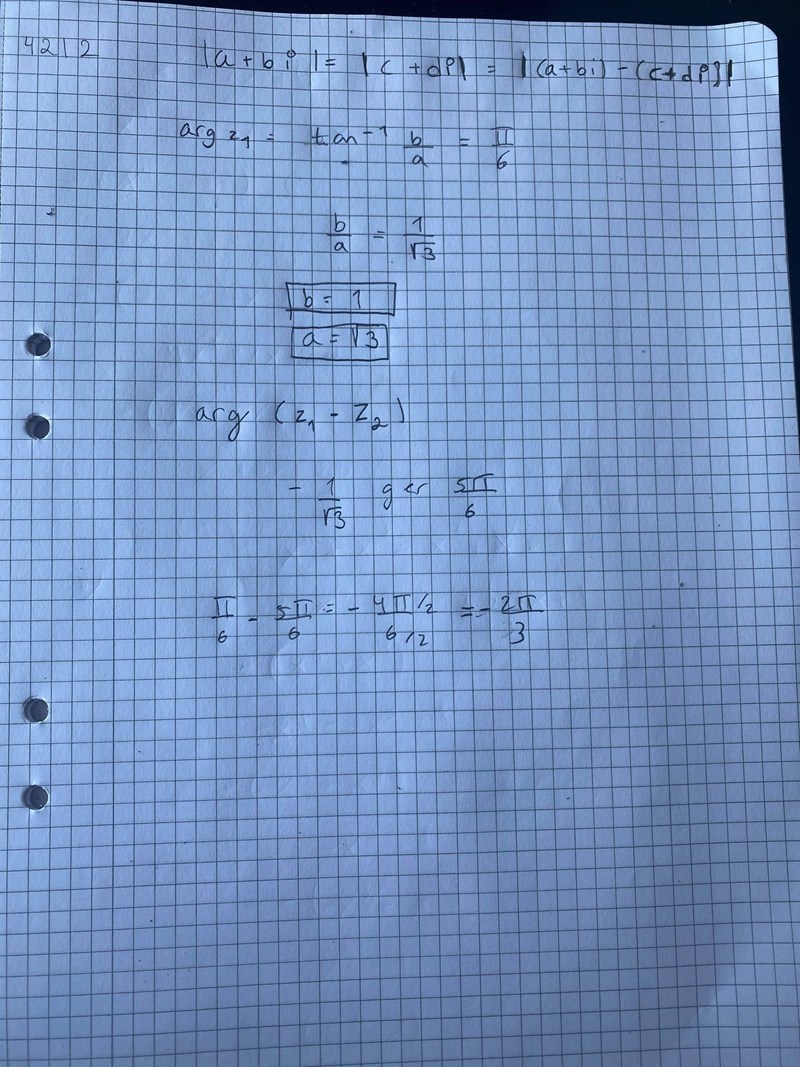 4212
|a + bi| = |c + di| = |(a+bi) - (c+di)|
arg z₁ = tan⁻¹ b/a = π/6
b/a = 1/√3
b = 1
a = √3
arg (z₁ - z₂)
- 1/√3 ger 5π/6
π/6 - 5π/6 = - 4π/2 / 6/2 = - 2π/3